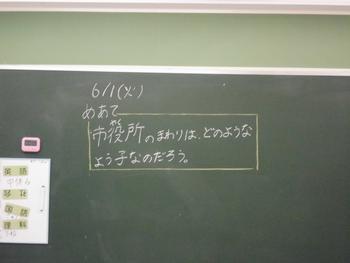 6/1(火)
めあて
市役所のまわりは、どのような
よう子なのだろう。
英語
国語
理科